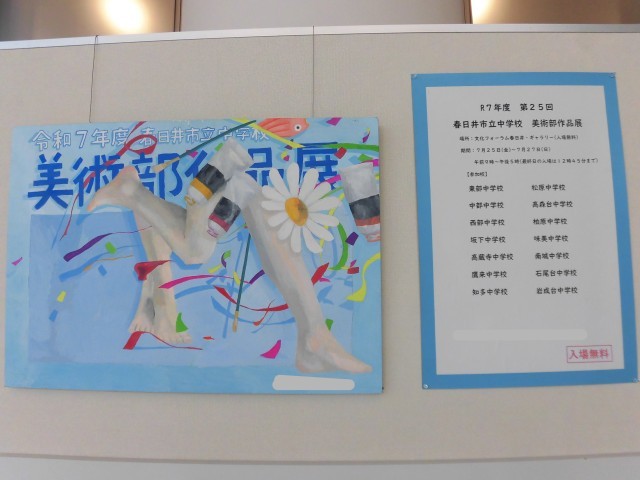 令和7年度 春日井市立中学校
美術部作品展
R7年度 第25回
春日井市立中学校 美術部作品展
場所：文化フォーラム春日井・ギャラリー(入場無料)
期間：7月25日(金)~7月27日(日)
午前9時~午後5時(最終日の入場は12時45分まで)
【参加校】
東部中学校 松原中学校
中部中学校 高森台中学校
西部中学校 柏原中学校
坂下中学校 味美中学校
高蔵寺中学校 南城中学校
鷹来中学校 石尾台中学校
知多中学校 岩成台中学校
入場無料